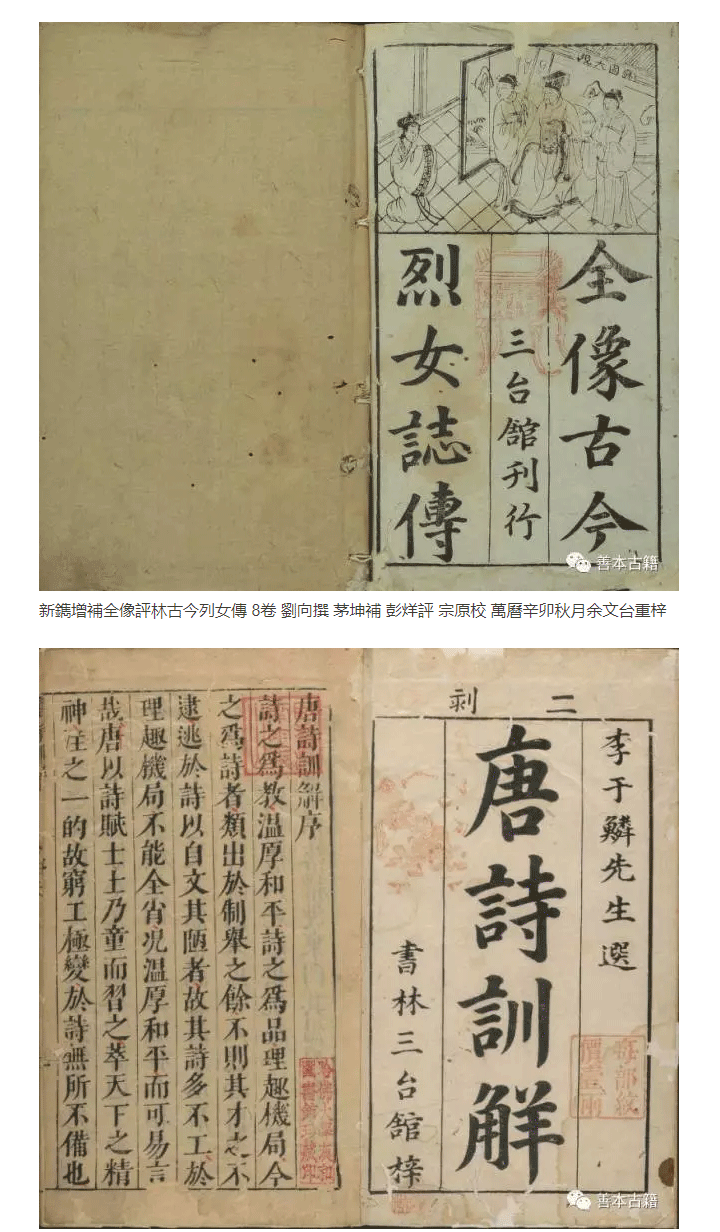 全像古今
三台舘刊行
烈女誌傳
善本古籍
新鐫增補全像評林古今列女傳 8卷 劉向撰 茅坤補 彭烊評 宗原校 萬曆辛卯秋月余文台重梓
二刻
李于鱗先生選
唐詩訓解
書林三台舘梓
每部紋
價壹兩
唐詩訓解序
詩之爲教温厚和平詩之爲品理趣機局今
之爲詩者類出於制舉之餘不則其才之不
逮逃於詩以自文其陋者故其詩多不工於
理趣機局不能全省况温厚和平而可易言
哉唐以詩賦士士乃童而習之萃天下之精
神注之一的故窮工極變於詩無所不備也
哈佛大學漢和
圖書館珍藏印
善本古籍